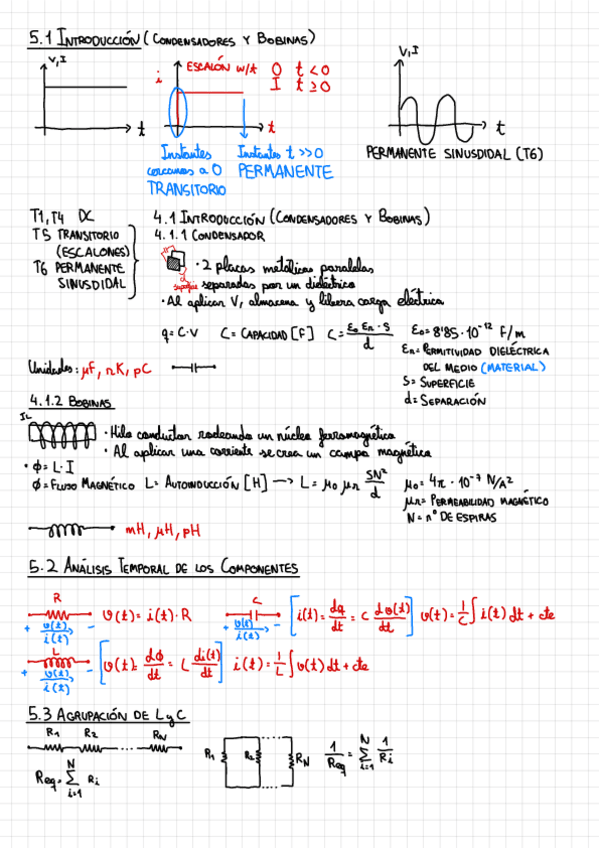 5.1 INTRODUCCIÓN (CONDENSADORES Y BOBINAS)
V,I
t
i
ESCALÓN w/t
0 t<0
I t≥0
t
V,I
t
Instantes cercanos a 0 TRANSITORIO
Instantes t>>0 PERMANENTE
PERMANENTE SINUSDIDAL (T6)
T1, T4 DC
T5 TRANSITORIO
(ESCALONES)
T6 PERMANENTE
SINUSDIDAL
4.1 INTRODUCCIÓN (CONDENSADORES Y BOBINAS)
4.1.1 CONDENSADOR
d
superficie
· 2 placas metálicas paralelas
separadas por un dieléctrico
· Al aplicar V, almacena y libera carga eléctrica
q = C·V C = CAPACIDAD [F] C = ε₀ εᵣ · S / d ε₀ = 8'85 · 10⁻¹² F/m
εᵣ = PERMITIVIDAD DIELÉCTRICA
DEL MEDIO (MATERIAL)
S = SUPERFICIE
d = SEPARACIÓN
Unidades: μF, nK, pC
4.1.2 BOBINAS
IL
· Hilo conductor rodeando un núcleo ferromagnético
· Al aplicar una corriente se crea un campo magnético
· ϕ = L·I
ϕ = FLUJO MAGNÉTICO L = AUTOINDUCCIÓN [H] → L = μ₀ μᵣ SN² / d
μ₀ = 4π · 10⁻⁷ N/A²
μᵣ = PERMEABILIDAD MAGNÉTICO
N = nº DE ESPIRAS
mH, μH, pH
5.2 ANÁLISIS TEMPORAL DE LOS COMPONENTES
R
+ v(t) -
i(t)
v(t) = i(t)·R
C
+ v(t) -
i(t)
[i(t) = dq/dt = C dv(t)/dt] v(t) = 1/C ∫ i(t) dt + cte
L
+ v(t) -
i(t)
[v(t) = dϕ/dt = L di(t)/dt] i(t) = 1/L ∫ v(t) dt + cte
5.3 AGRUPACIÓN DE L y C
R₁ R₂ ... R_N
Req = N Σ i=1 Rᵢ
R₁ R₂ R_N
1/Req = N Σ i=1 1/Rᵢ